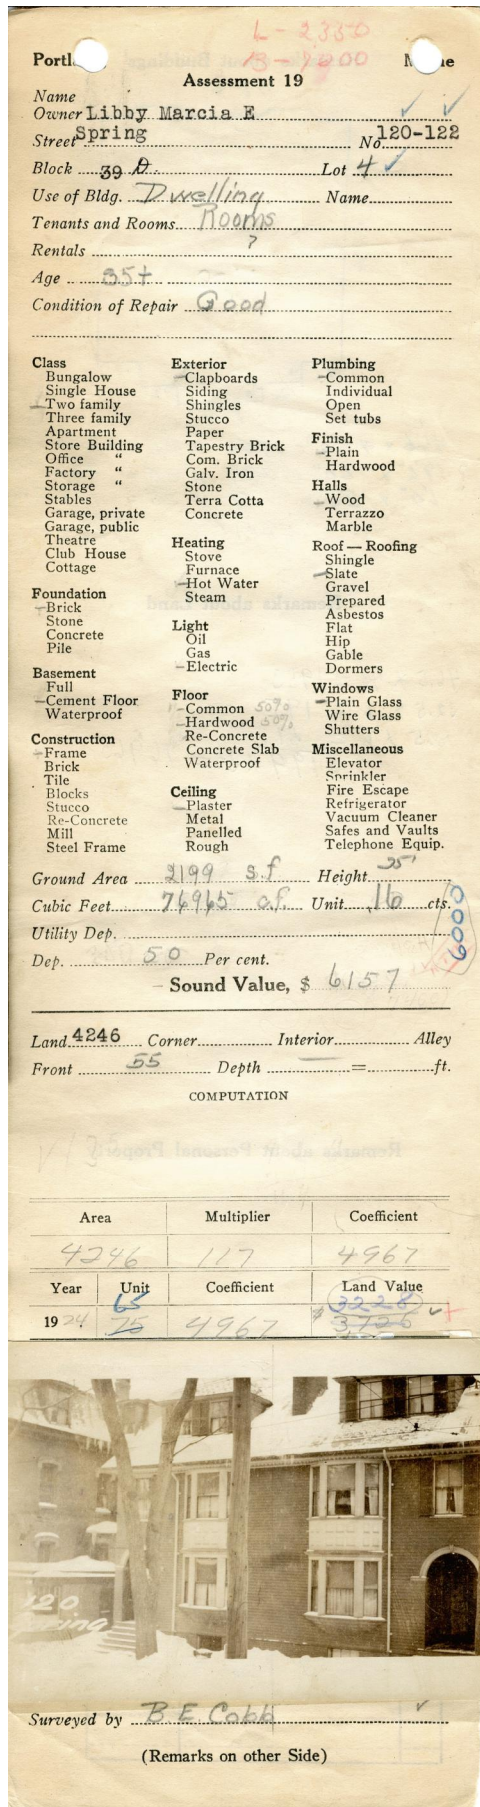 L - 2350
B - 7000
Portl Maine
Assessment 19
Name
Owner Libby Marcia E
Street Spring No. 120-122
Block 39 D. Lot 4
Use of Bldg. Dwelling Name
Tenants and Rooms Rooms
Rentals ?
Age 35+
Condition of Repair Good
Class
Bungalow
Single House
Two family
Three family
Apartment
Store Building
Office "
Factory "
Storage "
Stables
Garage, private
Garage, public
Theatre
Club House
Cottage
Foundation
Brick
Stone
Concrete
Pile
Basement
Full
Cement Floor
Waterproof
Construction
Frame
Brick
Tile
Blocks
Stucco
Re-Concrete
Mill
Steel Frame
Exterior
Clapboards
Siding
Shingles
Stucco
Paper
Tapestry Brick
Com. Brick
Galv. Iron
Stone
Terra Cotta
Concrete
Heating
Stove
Furnace
Hot Water
Steam
Light
Oil
Gas
Electric
Floor
Common 50%
Hardwood 50%
Re-Concrete
Concrete Slab
Waterproof
Ceiling
Plaster
Metal
Panelled
Rough
Plumbing
Common
Individual
Open
Set tubs
Finish
Plain
Hardwood
Halls
Wood
Terrazzo
Marble
Roof — Roofing
Shingle
Slate
Gravel
Prepared
Asbestos
Flat
Hip
Gable
Dormers
Windows
Plain Glass
Wire Glass
Shutters
Miscellaneous
Elevator
Sprinkler
Fire Escape
Refrigerator
Vacuum Cleaner
Safes and Vaults
Telephone Equip.
Ground Area 2199 s.f Height 35'
Cubic Feet 76965 c.f. Unit .16 cts.
Utility Dep.
6000
Dep. 50 Per cent.
Sound Value, $ 6157
Land 4246 Corner Interior Alley
Front 55 Depth = ft.
COMPUTATION
Area Multiplier Coefficient
4246 117 4967
Year Unit Coefficient Land Value
65 3228
1924 75 4967 $ 3726
120
Spring
Surveyed by B E Cobb
(Remarks on other Side)